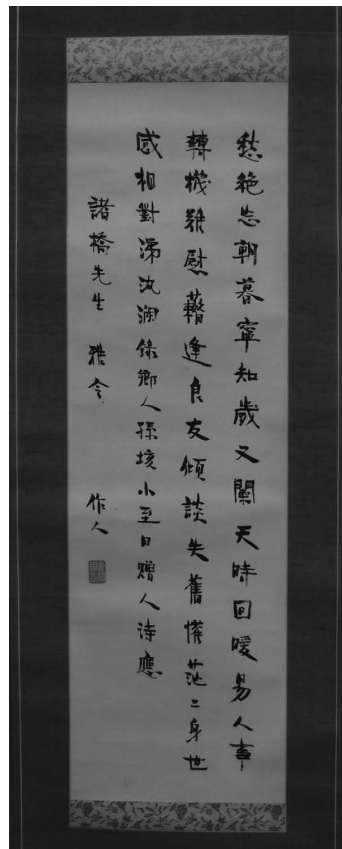 愁絶忘朝暮寧知歲又闌天時回暖易人事
轉機難慰藉逢良友傾談失舊懽茫〻身世
感相對涕汍瀾錄鄉人孫垓小至日贈人詩應
諸橋先生 雅令 作人